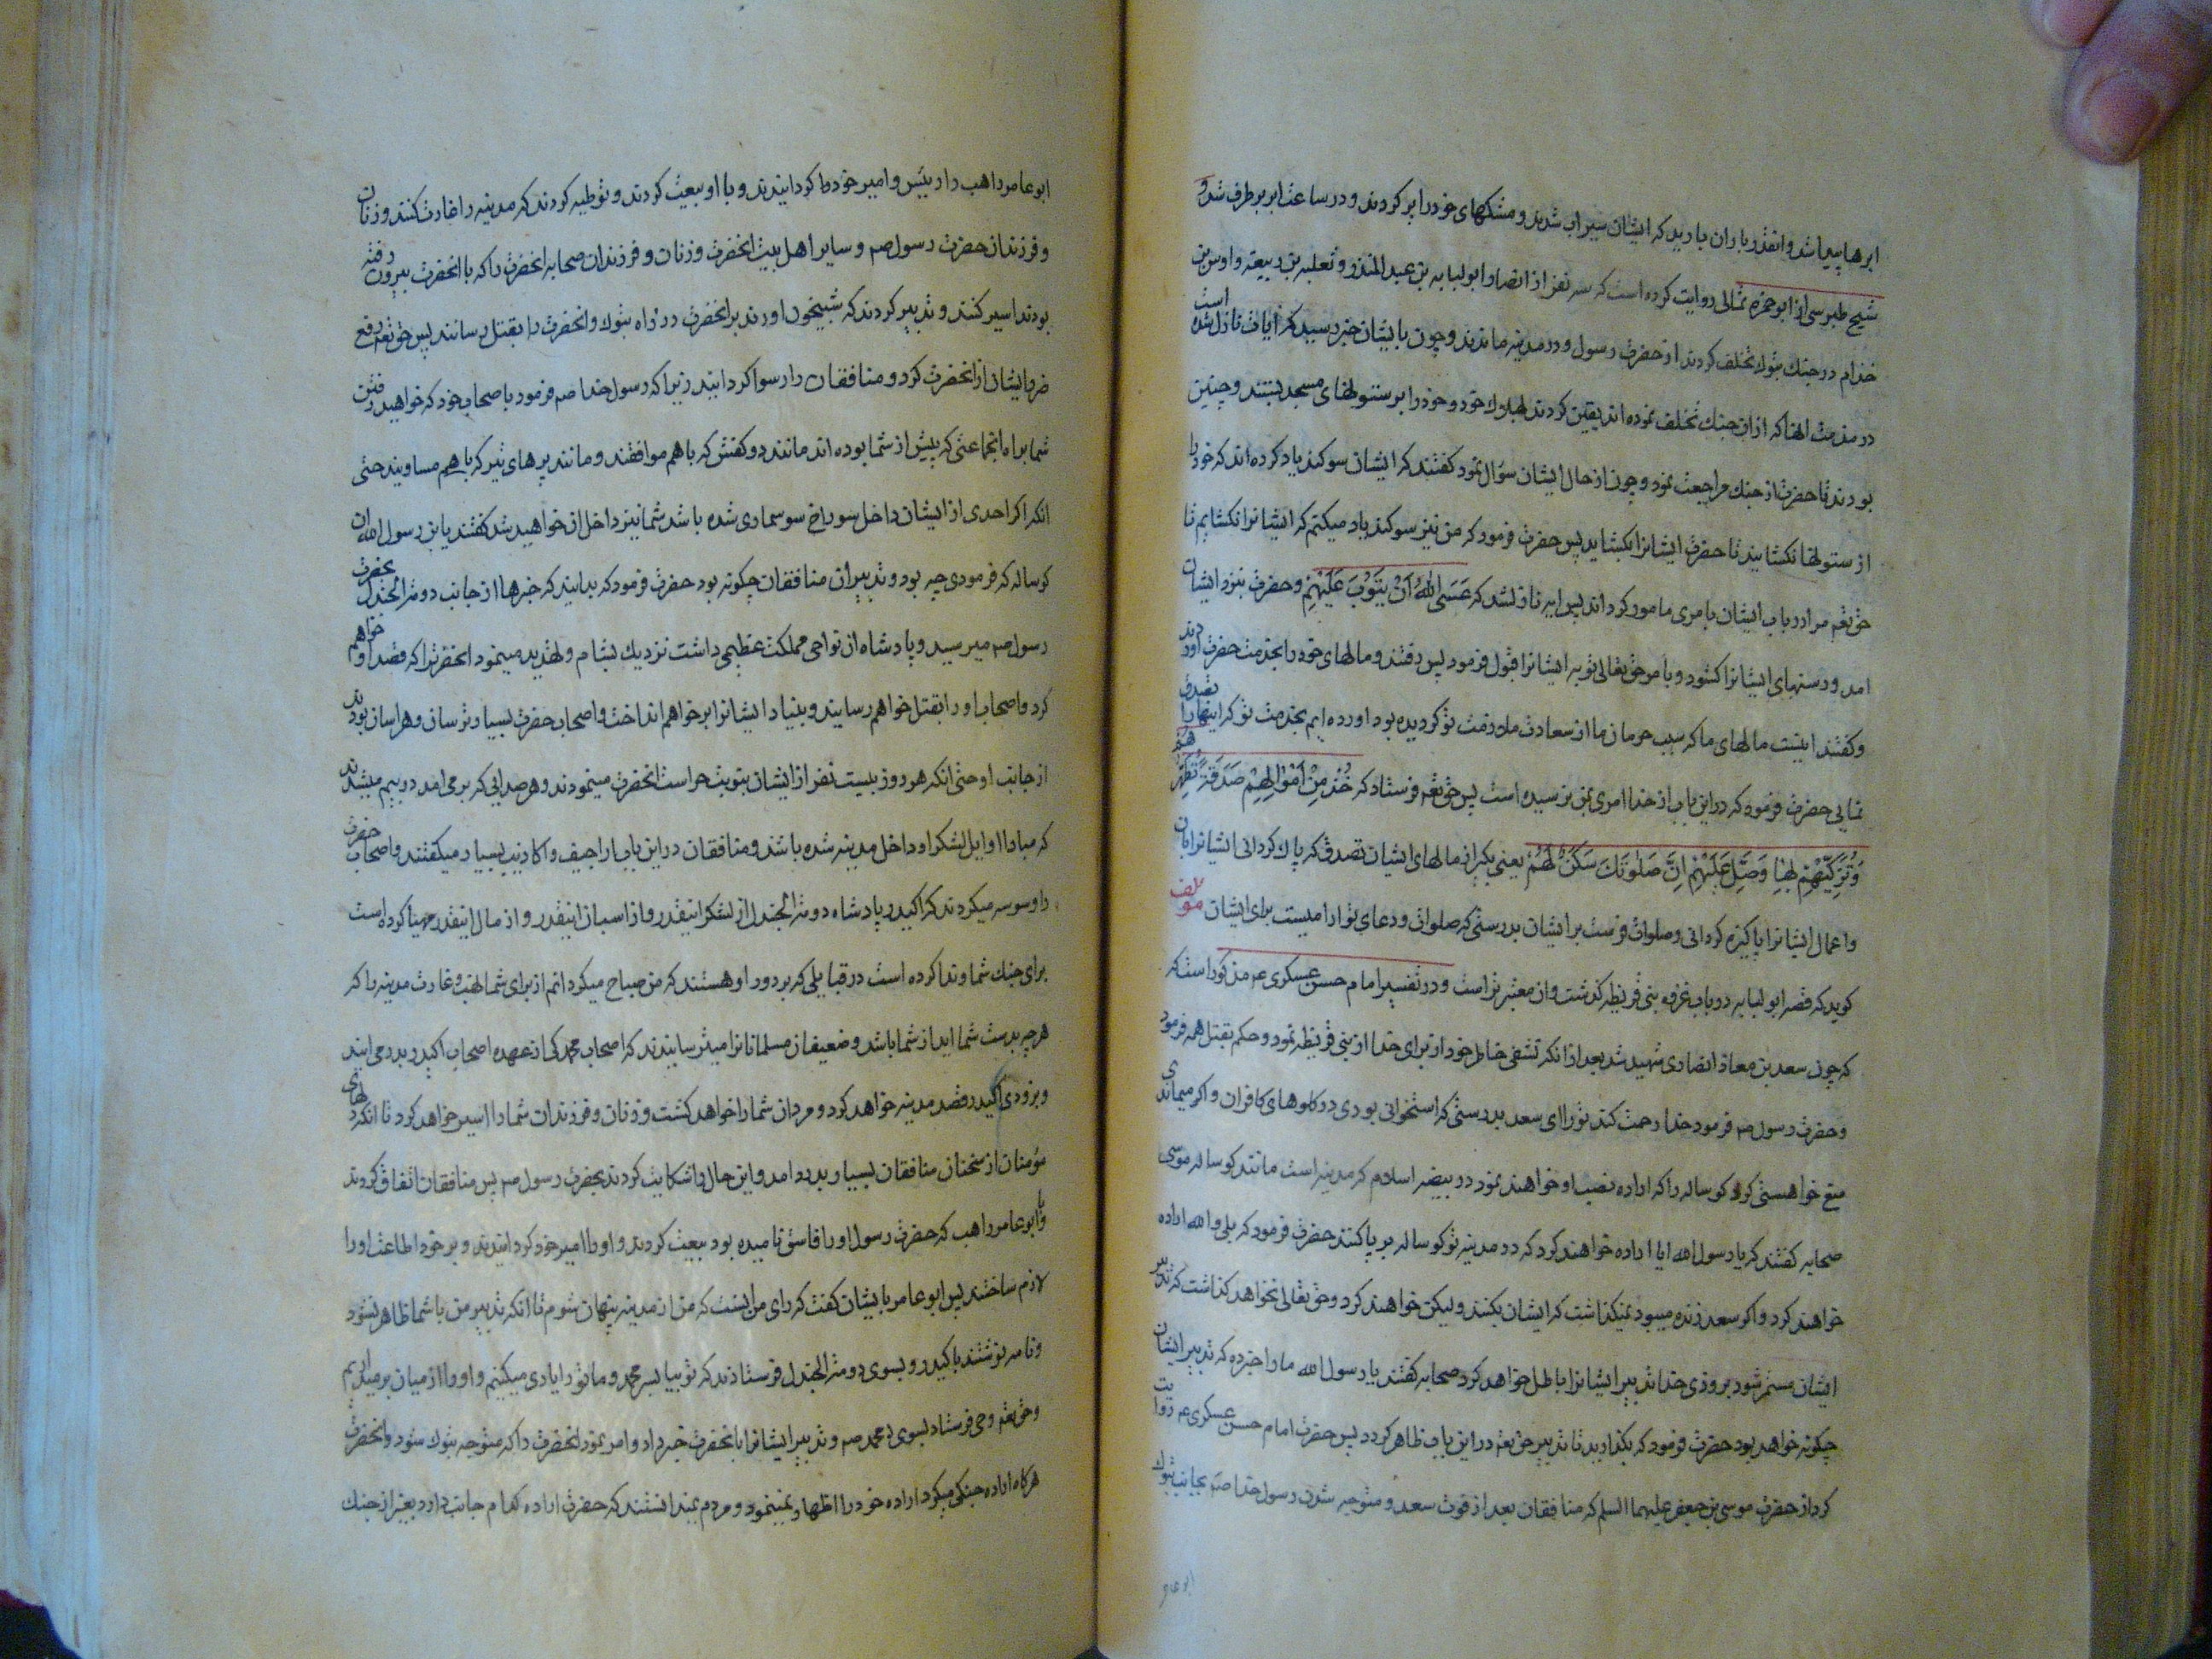 ابرها پیدا شد و انقدر باران بارید که ایشان سیراب شدند و مشکهای خود را پر کردند و در ساعت ابر برطرف شد و
شیخ طبرسی از ابوحمزه ثمالی روایت کرده است که سه نفر از انصار ابو لبابه بن عبد المنذر و ثعلبه بن ودیعه و اوس بن
خذام در جنك تبوك تخلف کردند از حضرت رسول و در مدینه ماندند و چون بایشان خبر رسید که ایات نازل شده است
در مذمت انها که از ان جنك تخلف نموده اند یقین کردند بهلاك خود و خود را بر ستونهای مسجد بستند و چنین
بودند تا حضرت از جنك مراجعت نمود و چون از حال ایشان سؤال نمود کفتند که ایشان سوکند یاد کرده اند که خود را
از ستونها نکشایند تا حضرت ایشانرا بکشاید پس حضرت فرمود که من نیز سوکند یاد میکنم که ایشانرا نکشایم تا
حق تعم مرا در باب ایشان بامری مامور کرداند پس ایه نازلشد که عَسَی اللهُ اَنْ یَتُوبَ عَلَیْهِمْ و حضرت بنزد ایشان
امد و رسنهای ایشانرا کشود و بامر حق تعالی توبه ایشانرا قبول فرمود پس رفتند و مالهای خود را بخدمت حضرت اوردند
و کفتند اینست مالهای ما که سبب حرمان ما از سعادت ملازمت تو کردیده بود اورده ایم بخدمت تو که اینها را تصدق
نمایی حضرت فرمود که در این باب از خدا امری بمن نرسیده است پس حق تعم فرستاد که خُذْ مِنْ اَمْوالِهِمْ صَدَقَةً تُطَهِّرُهُمْ
وَتُزَکّیهِمْ بِها وَصَلِّ عَلَیْهِمْ اِنَّ صَلوتَكَ سَکَنٌ لَهُمْ یعنی بکیر از مالهای ایشان تصدقی که پاك کردانی ایشانرا بان
و اعمال ایشانرا پاکیزه کردانی و صلوات فرست بر ایشان بدرستی که صلوات و دعای تو ارامیست برای ایشان مولف
کوید که قصه ابو لبابه در باب غزوه بنی قریظه کذشت و ان معتبر تر است و در تفسیر امام حسن عسکری عم مذکور است که
که چون سعد بن معاذ انصاری شهید شد بعد از انکه تشفی خاطر خود از برای خدا از بنی قریظه نمود و حکم بقتل همه فرمود
و حضرت رسول صم فرمود خدا رحمت کند تو را ای سعد بدرستی که استخوانی بودی در کلوهای کافران و اکر میماندی
منع خواهستی کرد کوساله را که اراده نصب او خواهند نمود در بیضه اسلام که مدینه است مانند کوساله موسی
صحابه کفتند که یا رسول الله ایا اراده خواهند کرد که در مدینه تو کوساله بر پا کنند حضرت فرمود که بلی والله اراده
خواهند کرد و اکر سعد زنده میبود نمیکذاشت که ایشان بکنند ولیکن خواهند کرد و حق تعالی نخواهد کذاشت که تدبیر
ایشان مستمر شود بزودی خدا تدبیر ایشانرا باطل خواهد کرد صحابه کفتند یا رسول الله ما را خبر ده که تدبیر ایشان
چکونه خواهد بود حضرت فرمود که بکذارید تا تدبیر حق تعم در این باب ظاهر کردد پس حضرت امام حسن عسکری عم روایت
کرد از حضرت موسی بن جعفر علیهما السلم که منافقان بعد از فوت سعد و متوجه شدن رسول خدا صم بجانب تبوك
ابو عامر
ابو عامر راهب را رییس و امیر خود کردانیدند و با او بیعت کردند و توطیه کردند که مدینه را غارت کنند و زنان
و فرزندان حضرت رسول صم و سایر اهل بیت انحضرت و زنان و فرزندان صحابه انحضرت را که با انحضرت بیرون رفته
بودند اسیر کنند و تدبیر کردند که شبیخون اورند بر انحضرت در راه تبوك و انحضرت را بقتل رسانند پس حق تعم دفع
ضرر ایشان از انحضرت کرد و منافقان را رسوا کردانید زیرا که رسول خدا صم فرمود باصحاب خود که خواهید رفتن
شما براه انجماعتی که پیش از شما بوده اند مانند دو کفش که با هم موافقند و مانند پرهای تیر که با هم مساویند حتی
انکه اکر احدی از ایشان داخل سوراخ سوسماری شده باشد شما نیز داخل ان خواهید شد کفتند یابن رسول الله ان
کوساله که فرمودی چه بود و تدبیر ان منافقان چکونه بود حضرت فرمود که بدانید که خبرها از جانب دومة الجندل بحضرت
رسول صم میرسید و پادشاه ان نواحی مملکت عظیمی داشت نزدیك بشام و تهدید مینمود انحضرترا که قصد او خواهم
کرد و اصحاب او را بقتل خواهم رسانید و بنیاد ایشانرا بر خواهم انداخت و اصحاب حضرت بسیار ترسان و هراسان بودند
از جانب او حتی انکه هر روز بیست نفر از ایشان بنوبت حراست انحضرت مینمودند و هر صدایی که بر می امد در بیم میشدند
که مبادا اوایل لشکر او داخل مدینه شده باشند و منافقان در این باب اراجیف و اکاذیب بسیار میکفتند و اصحاب حضرت
را وسوسه میکردند که اکیدر پادشاه دومة الجندل از لشکر اینقدر و از اسبان اینقدر و از مال اینقدر مهیا کرده است
برای جنك شما و ندا کرده است در قبایلی که بر دور او هستند که من مباح میکردانم از برای شما نهب و غارت مدینه را که
هر چه بدست شما اید از شما باشد و ضعیفان مسلمانانرا میترسانیدند که اصحاب محمد کی از عهده اصحاب اکیدر بدر می ایند
و بزودی اکیدر قصد مدینه خواهد کرد و مردان شما را خواهد کشت و زنان و فرزندان شما را اسیر خواهد کرد تا انکه دلهای
مؤمنان از سخنان منافقان بسیار بدرد امد و این حال را شکایت کردند بحضرت رسول صم پس منافقان اتفاق کردند
و با ابو عامر راهب که حضرت رسول او را فاسق نامیده بود بیعت کردند و او را امیر خود کردانیدند و بر خود اطاعت او را
لازم ساختند پس ابو عامر بایشان کفت که رای من اینست که من از مدینه پنهان شوم تا انکه تدبیر من با شما ظاهر نشود
و نامه نوشتند باکیدر و بسوی دومة الجندل فرستادند که تو بیا بسر محمد و ما تو را یاری میکنیم و او را از میان بر میداریم
و حق تعم وحی فرستاد بسوی محمد صم و تدبیر ایشانرا بانحضرت خبر داد و امر نمود انحضرت را که متوجه تبوك شود و انحضرت
هرکاه اراده جنکی میکرد اراده خود را اظهار نمینمود و مردم نمیدانستند که حضرت اراده کدام جانب دارد بغیر از جنك